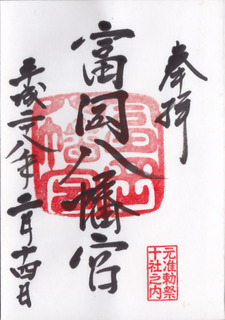 奉拝
富岡八幡宮
平成二十八年二月十四日
元准勅祭
十社之内